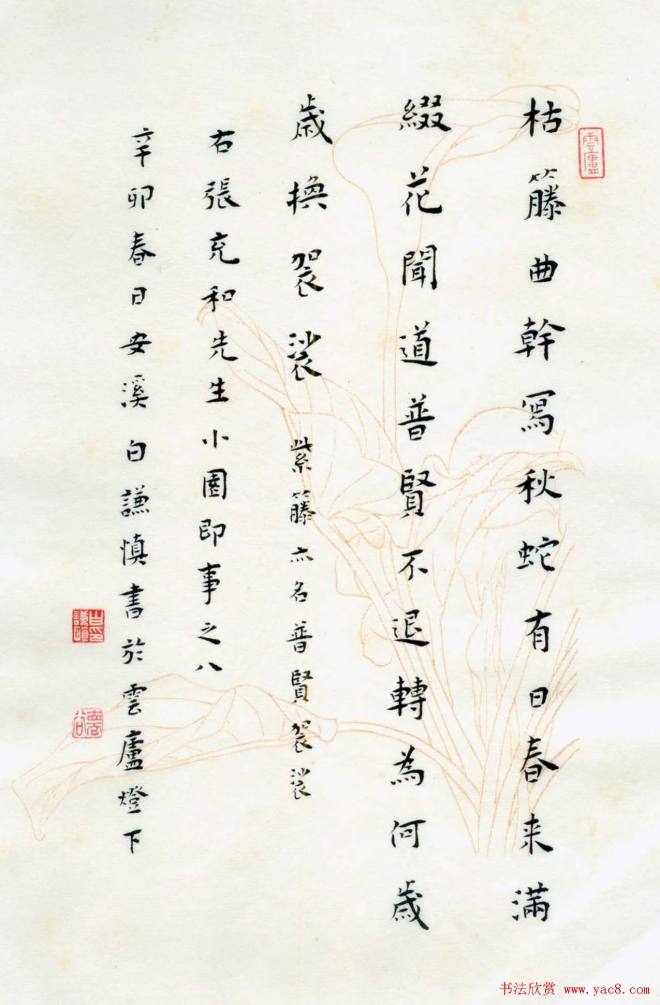 枯籐曲幹寫秋蛇有日春来滿
綴花聞道普賢不退轉為何歲
歲換袈裟 紫籐亦名普賢袈裟
右張充和先生小園即事之八
辛卯春日安溪白謙慎書於雲廬燈下
雲廬
书法欣赏 www.yac8.com